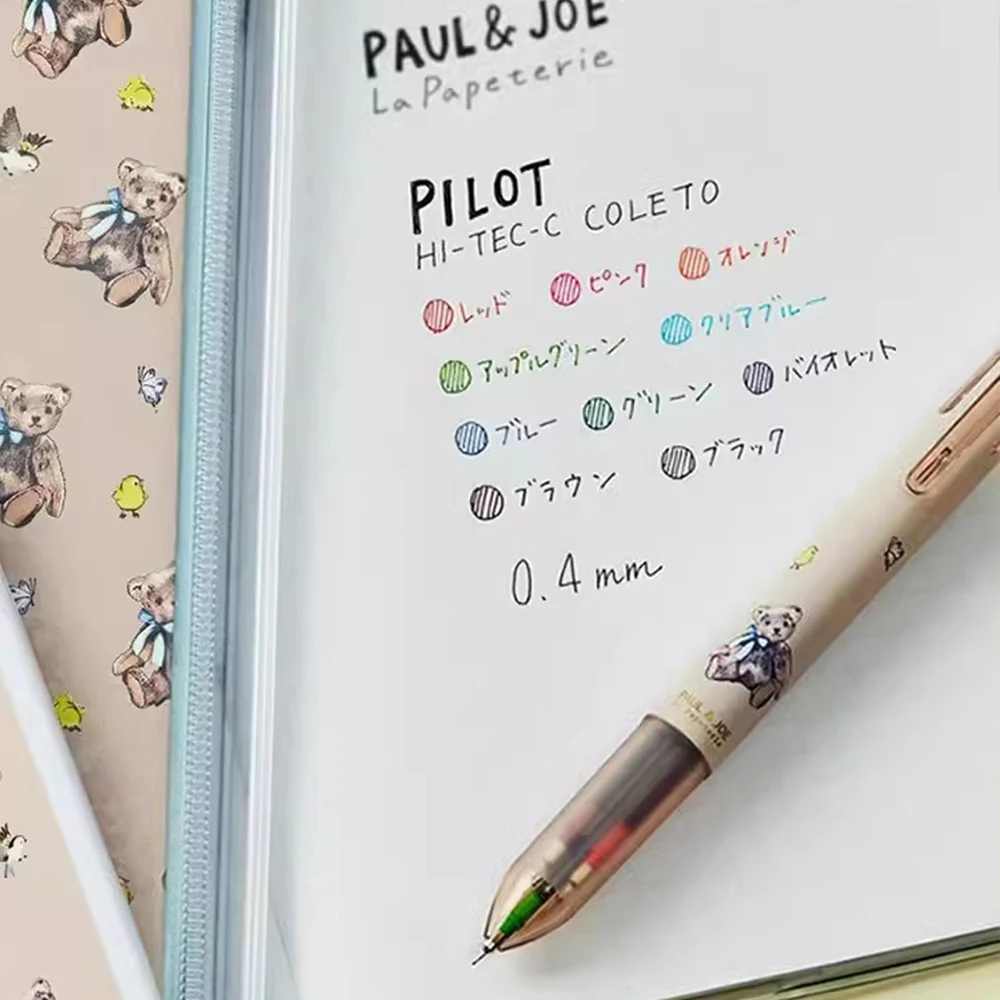 PAUL & JOE
La Papeterie
PILOT
HI-TEC-C COLETO
レッド ピンク オレンジ
アップルグリーン クリアブルー
ブルー グリーン バイオレット
ブラウン ブラック
0.4 mm
PAUL & JOE
La Papeterie